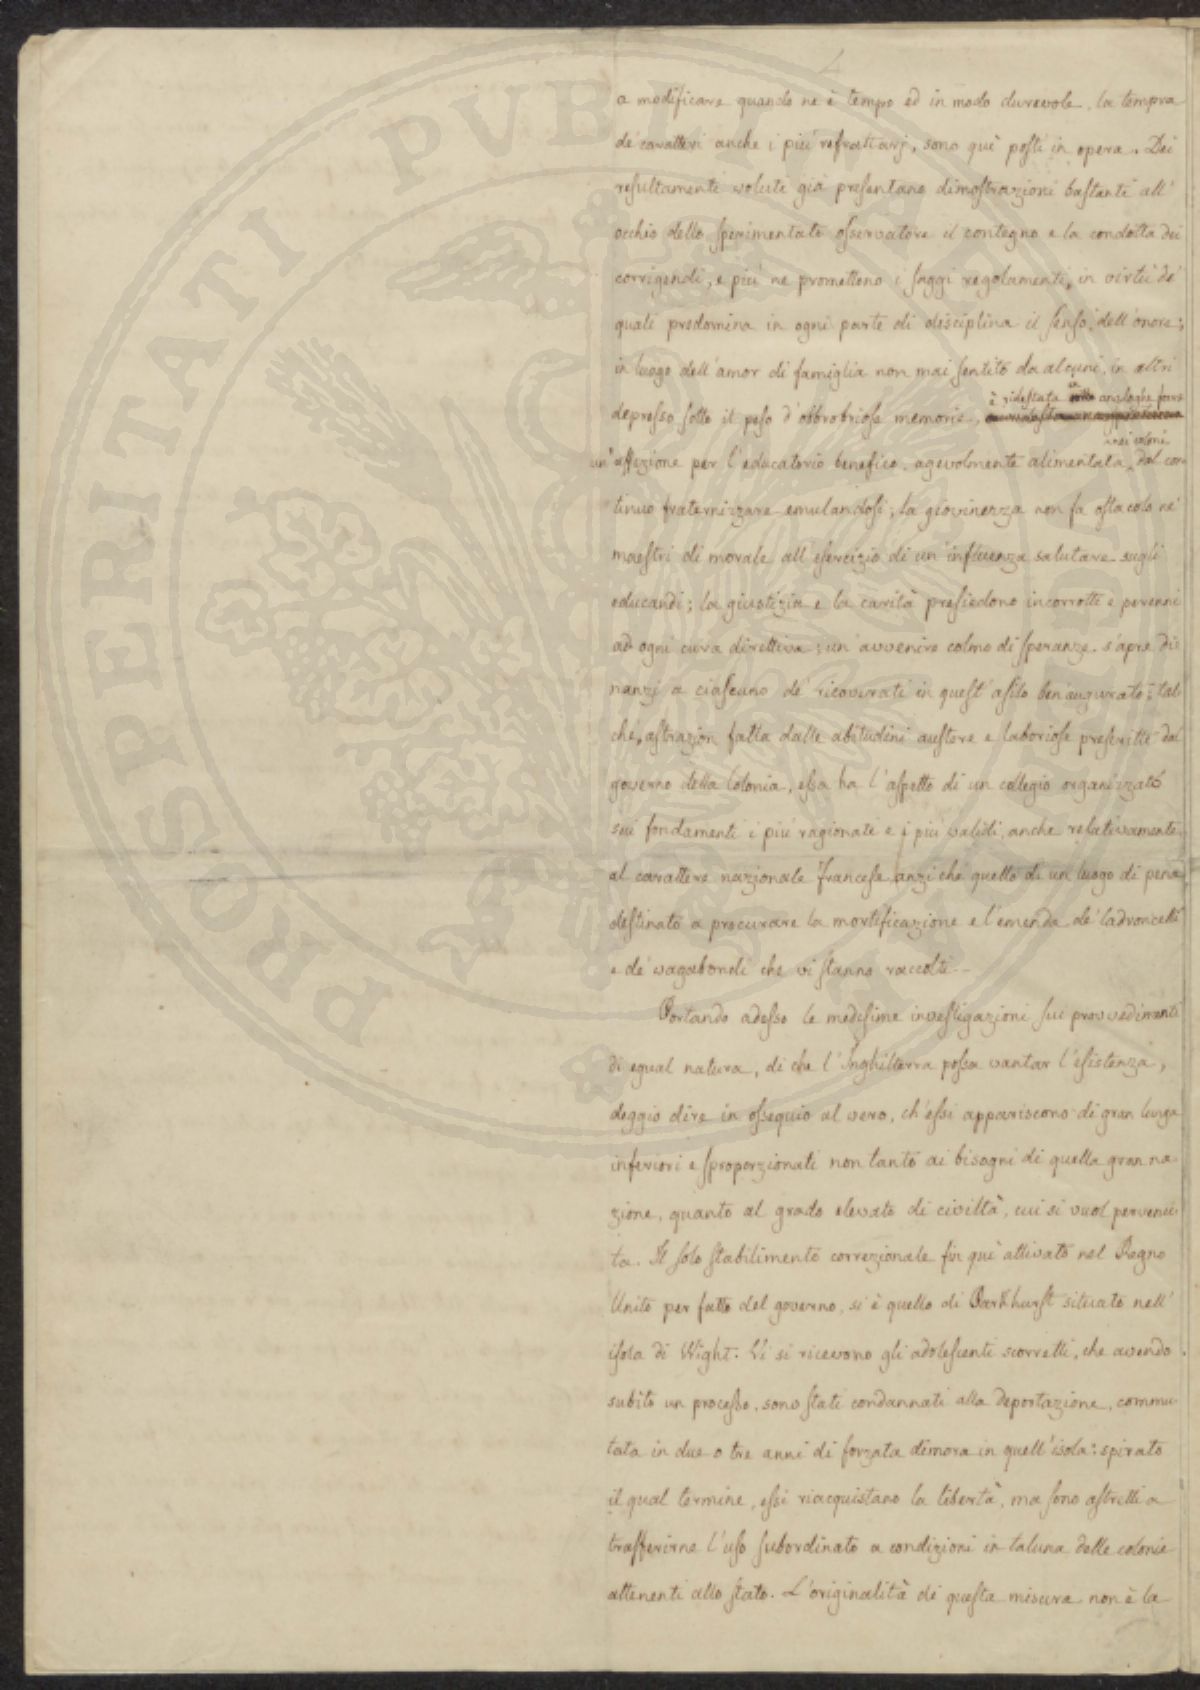 a modificare quando ne è tempo ed in modo durevole, la tempra
de' caratteri anche i più refrattarj, sono quì posti in opera. Dei
resultamenti voluti già presentano dimostrazioni bastanti all'
occhio dello sperimentato osservatore il contegno e la condotta dei
corrigendi, e più ne promettono i saggi regolamenti, in virtù de'
quali predomina in ogni parte di disciplina il senso dell'onore;
in luogo dell'amor di famiglia non mai sentito da alcuni, in altri
è ridestata analoghe forze
depresso sotto il peso d'obbrobriose memorie,
nei coloni
un'affezione per l'educatorio benefico, agevolmente alimentata dal con-
tinuo fraternizzare emulandosi; la giovinezza non fa ostacolo ne'
maestri di morale all'esercizio di un'influenza salutare sugli
educandi; la giustizia e la carità presiedono incorrotte e perenni
ad ogni cura direttiva; un avvenire colmo di speranze s'apre di-
nanzi a ciascuno de' ricoverati in quest'asilo ben'augurato; tal-
chè, astrazion fatta dalle abitudini austere e laboriose prescritte dal
governo della Colonia, essa ha l'aspetto di un collegio organizzato
sui fondamenti i più ragionati e i più validi, anche relativamente
al carattere nazionale francese anzi che quello di un luogo di pena
destinato a procurare la mortificazione e l'emenda de' ladroncelli
e de' vagabondi che vi stanno raccolti.
Portando adesso le medesime investigazioni sui provvedimenti
di egual natura, di che l'Inghilterra possa vantar l'esistenza,
deggio dire in ossequio al vero, ch'essi appariscono di gran lunga
inferiori e sproporzionati non tanto ai bisogni di quella gran na-
zione, quanto al grado elevato di civiltà, cui si vuol pervenu-
ta. Il solo stabilimento correzionale fin quì attivato nel Regno
Unito per fatto del governo, si è quello di Parkhurst situato nell'
isola di Wight. Vi si ricevono gli adolescenti scorretti, che avendo
subìto un processo, sono stati condannati alla deportazione, commu-
tata in due o tre anni di forzata dimora in quell'isola: spirato
il qual termine, essi riacquistano la libertà, ma sono astretti a
trasferirne l'uso subordinato a condizioni in taluna delle colonie
attenenti allo stato. L'originalità di questa misura non è la
PROSPERITATI PUBLICAE